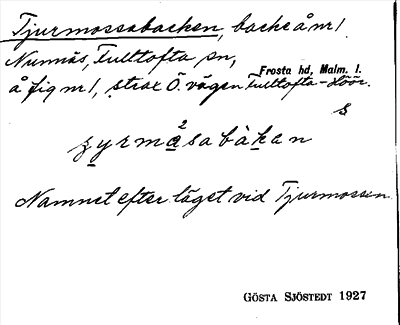 Tjurmossabacken, backe å nr 1
Nunnäs, Fulltofta sn,
Frosta hd, Malm. l.
å fig nr 1, strax Ö. vägen Fulltofta - Höör.
s
ȥyrmåsabàkan
Namnet efter läget vid Tjurmossen
GÖSTA SJÖSTEDT 1927